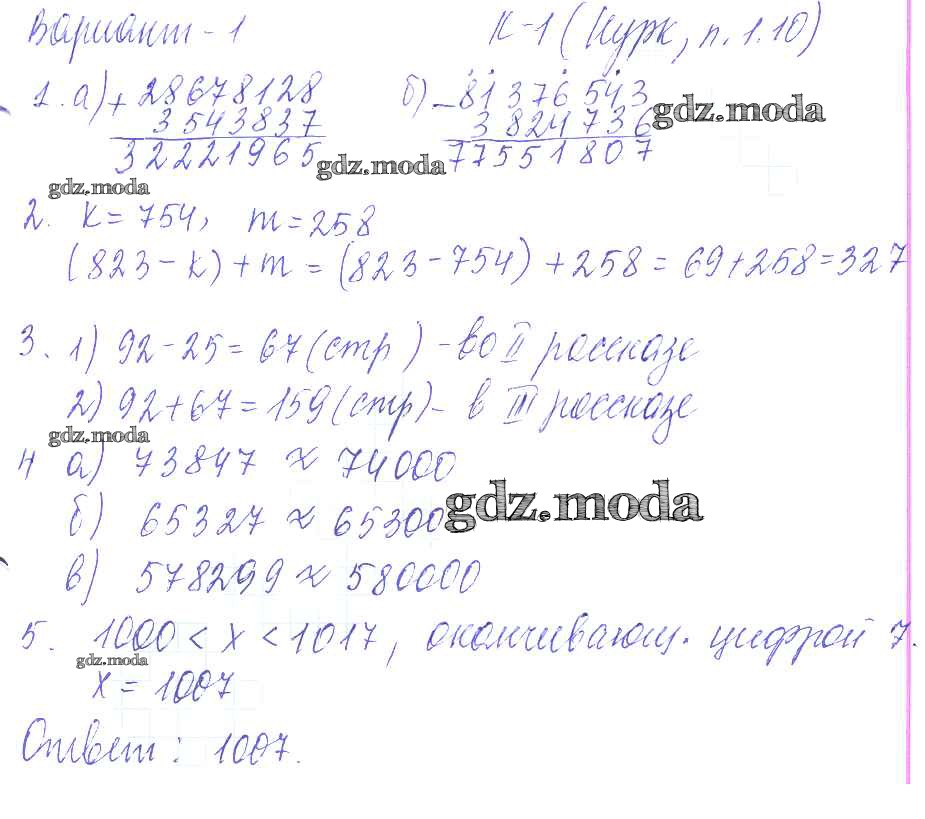 Вариант-1 К-1 (Нурк, п. 1.10)
1. а) + 28678128 б) - 81376543
3543837 3824736
32221965 77551807
gdz.moda
gdz.moda
gdz.moda
2. k = 754, m = 258
(823 - k) + m = (823 - 754) + 258 = 69 + 258 = 327
3. 1) 92 - 25 = 67 (стр) - во II рассказе
2) 92 + 67 = 159 (стр) - в III рассказе
gdz.moda
4 а) 73847 ≈ 74000
б) 65327 ≈ 65300
gdz.moda
в) 578299 ≈ 580000
5. 1000 < x < 1017, оканчивающ. цифрой 7.
gdz.moda
x = 1007
Ответ: 1007.